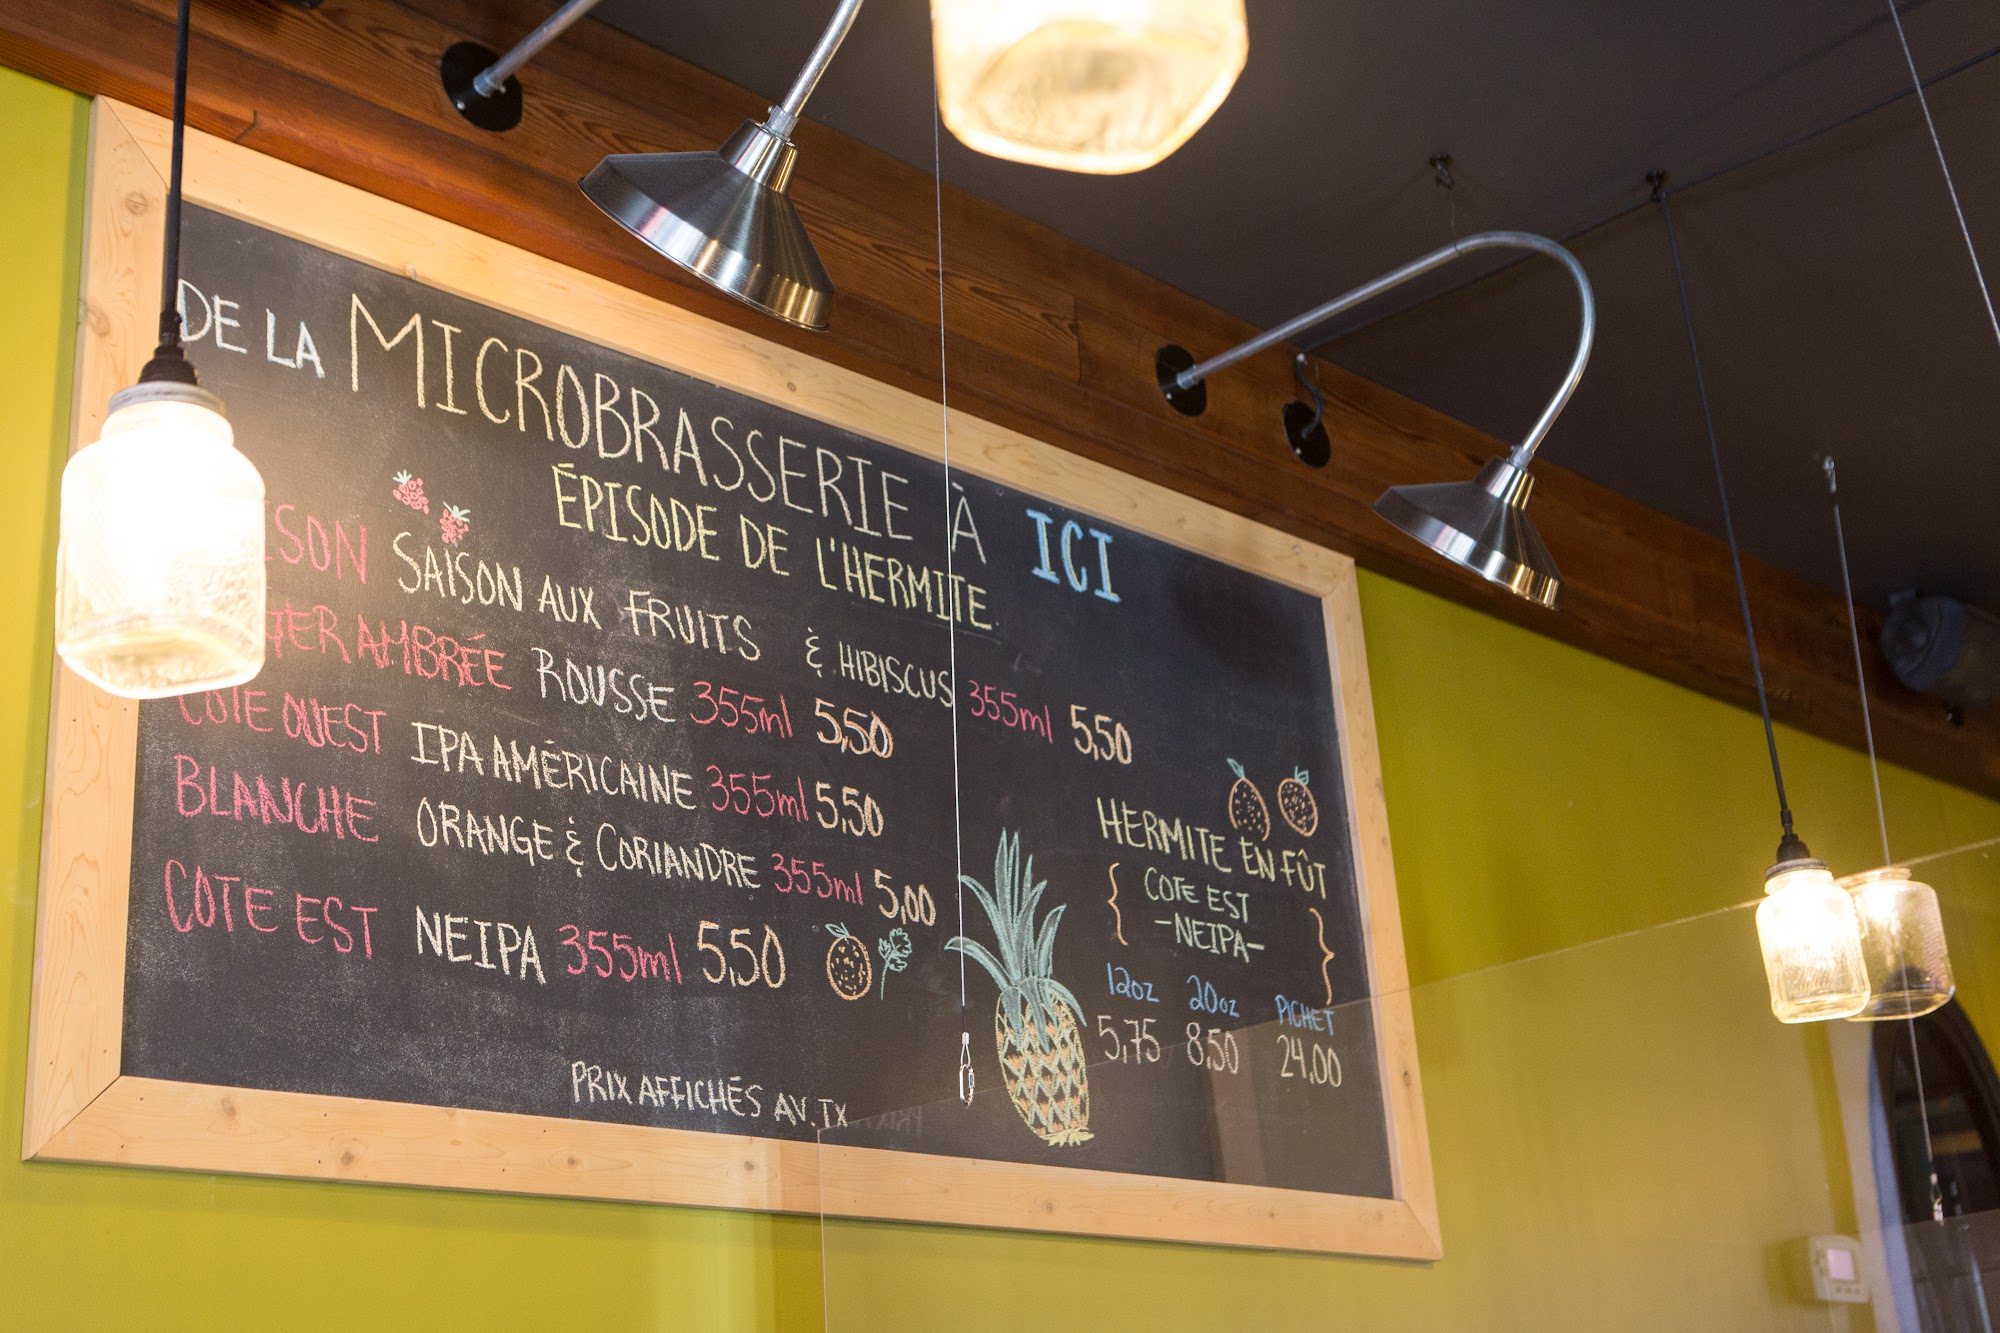 DE LA MICROBRASSERIE À ICI
ÉPISODE DE L'HERMITE
SAISON AUX FRUITS & HIBISCUS 355ml 5,50
AMBRÉE ROUSSE 355ml 5,50
COTE OUEST IPA AMÉRICAINE 355ml 5,50
BLANCHE ORANGE & CORIANDRE 355ml 5,00
COTE EST NEIPA 355ml 5,50
PRIX AFFICHÉS AV. TX
HERMITE EN FÛT
{ COTE EST
-NEIPA- }
12oz 20oz PICHET
5,75 8,50 24,00